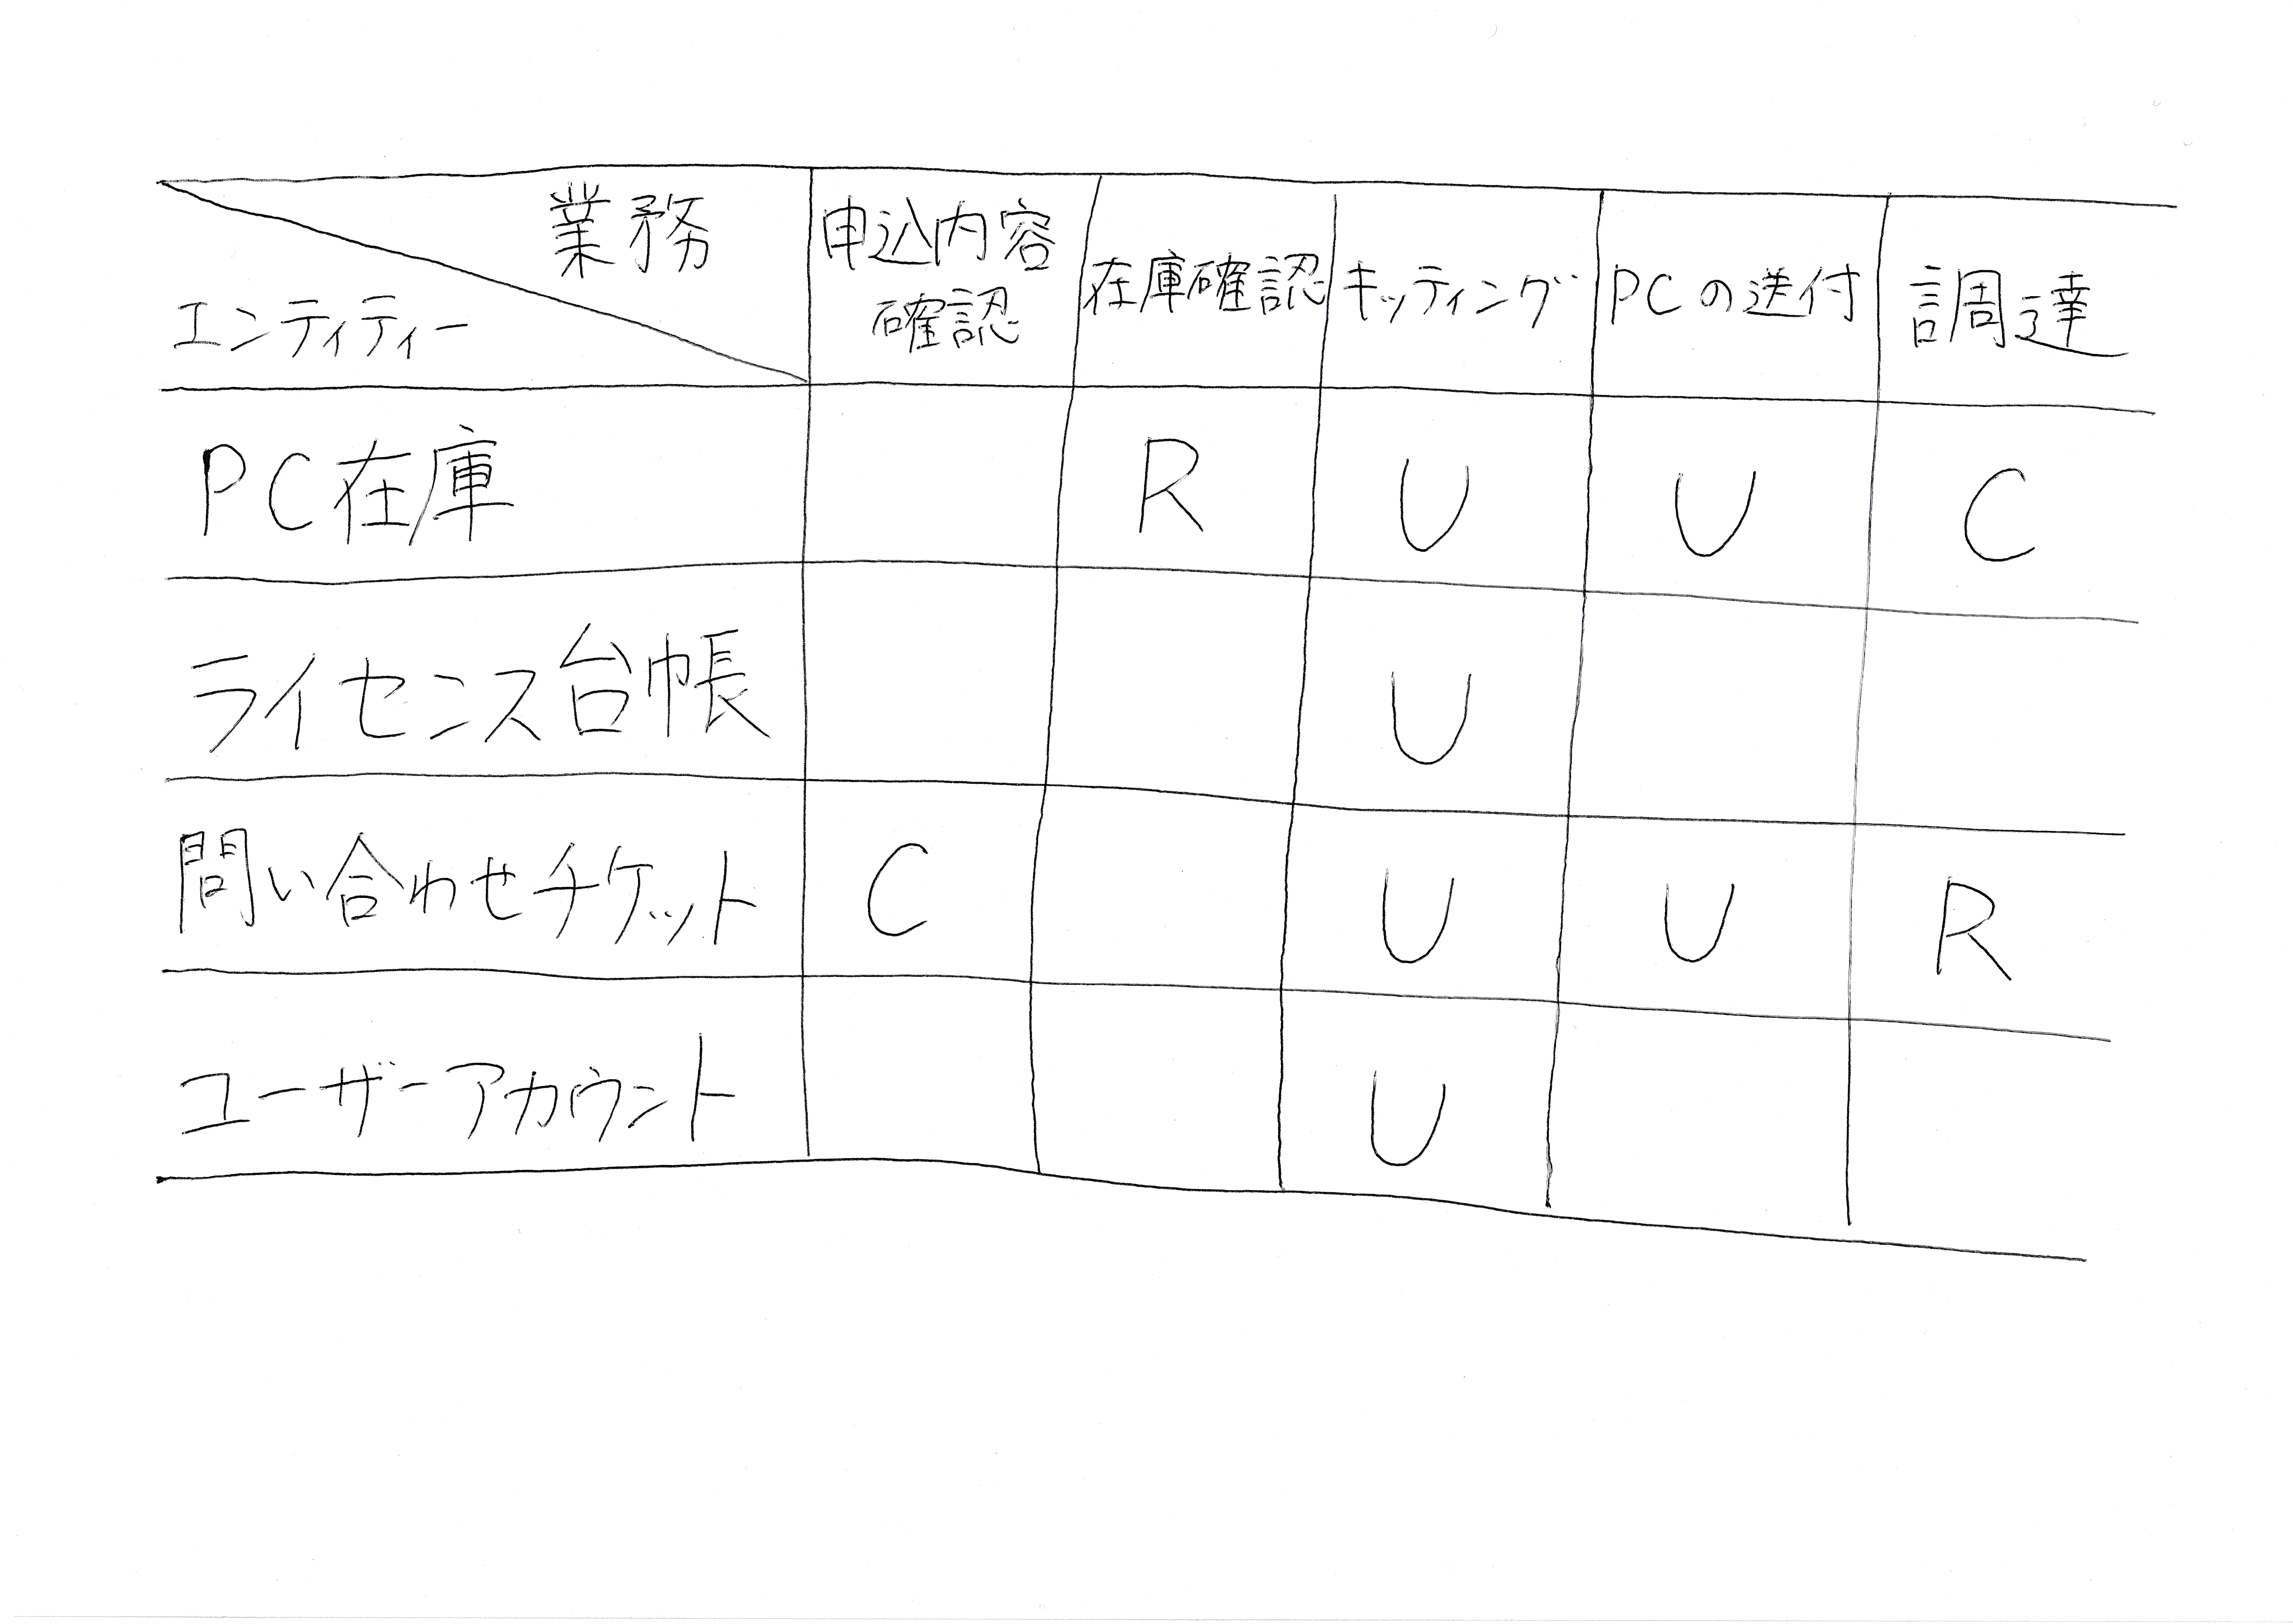 業務
エンティティー
申込内容
確認
在庫確認
キッティング
PCの送付
調達
PC在庫
R
U
U
C
ライセンス台帳
U
問い合わせチケット
C
U
U
R
ユーザーアカウント
U